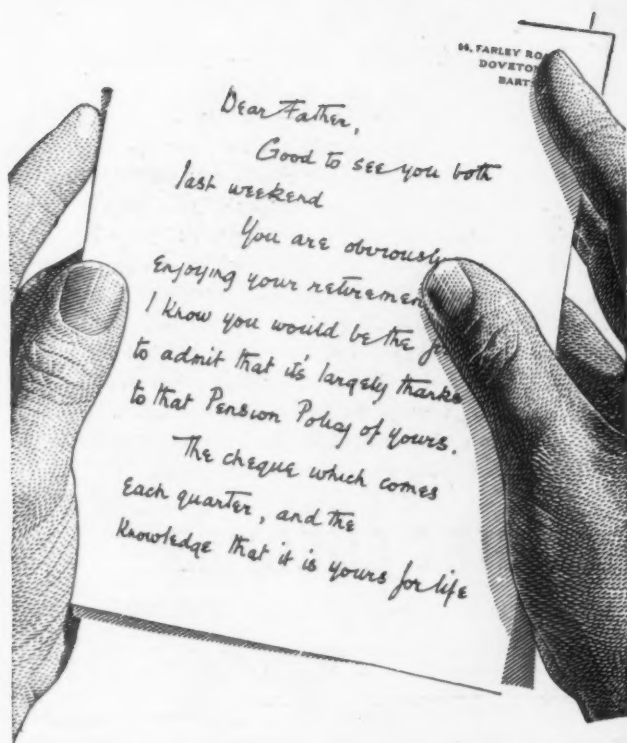 56, FARLEY ROA
DOVETON
BART
Dear Father,
Good to see you both
last weekend
You are obviously
enjoying your retiremen
I know you would be the fi
to admit that it's largely thanks
to that Pension Policy of yours.
The cheque which comes
each quarter, and the
knowledge that it is yours for life